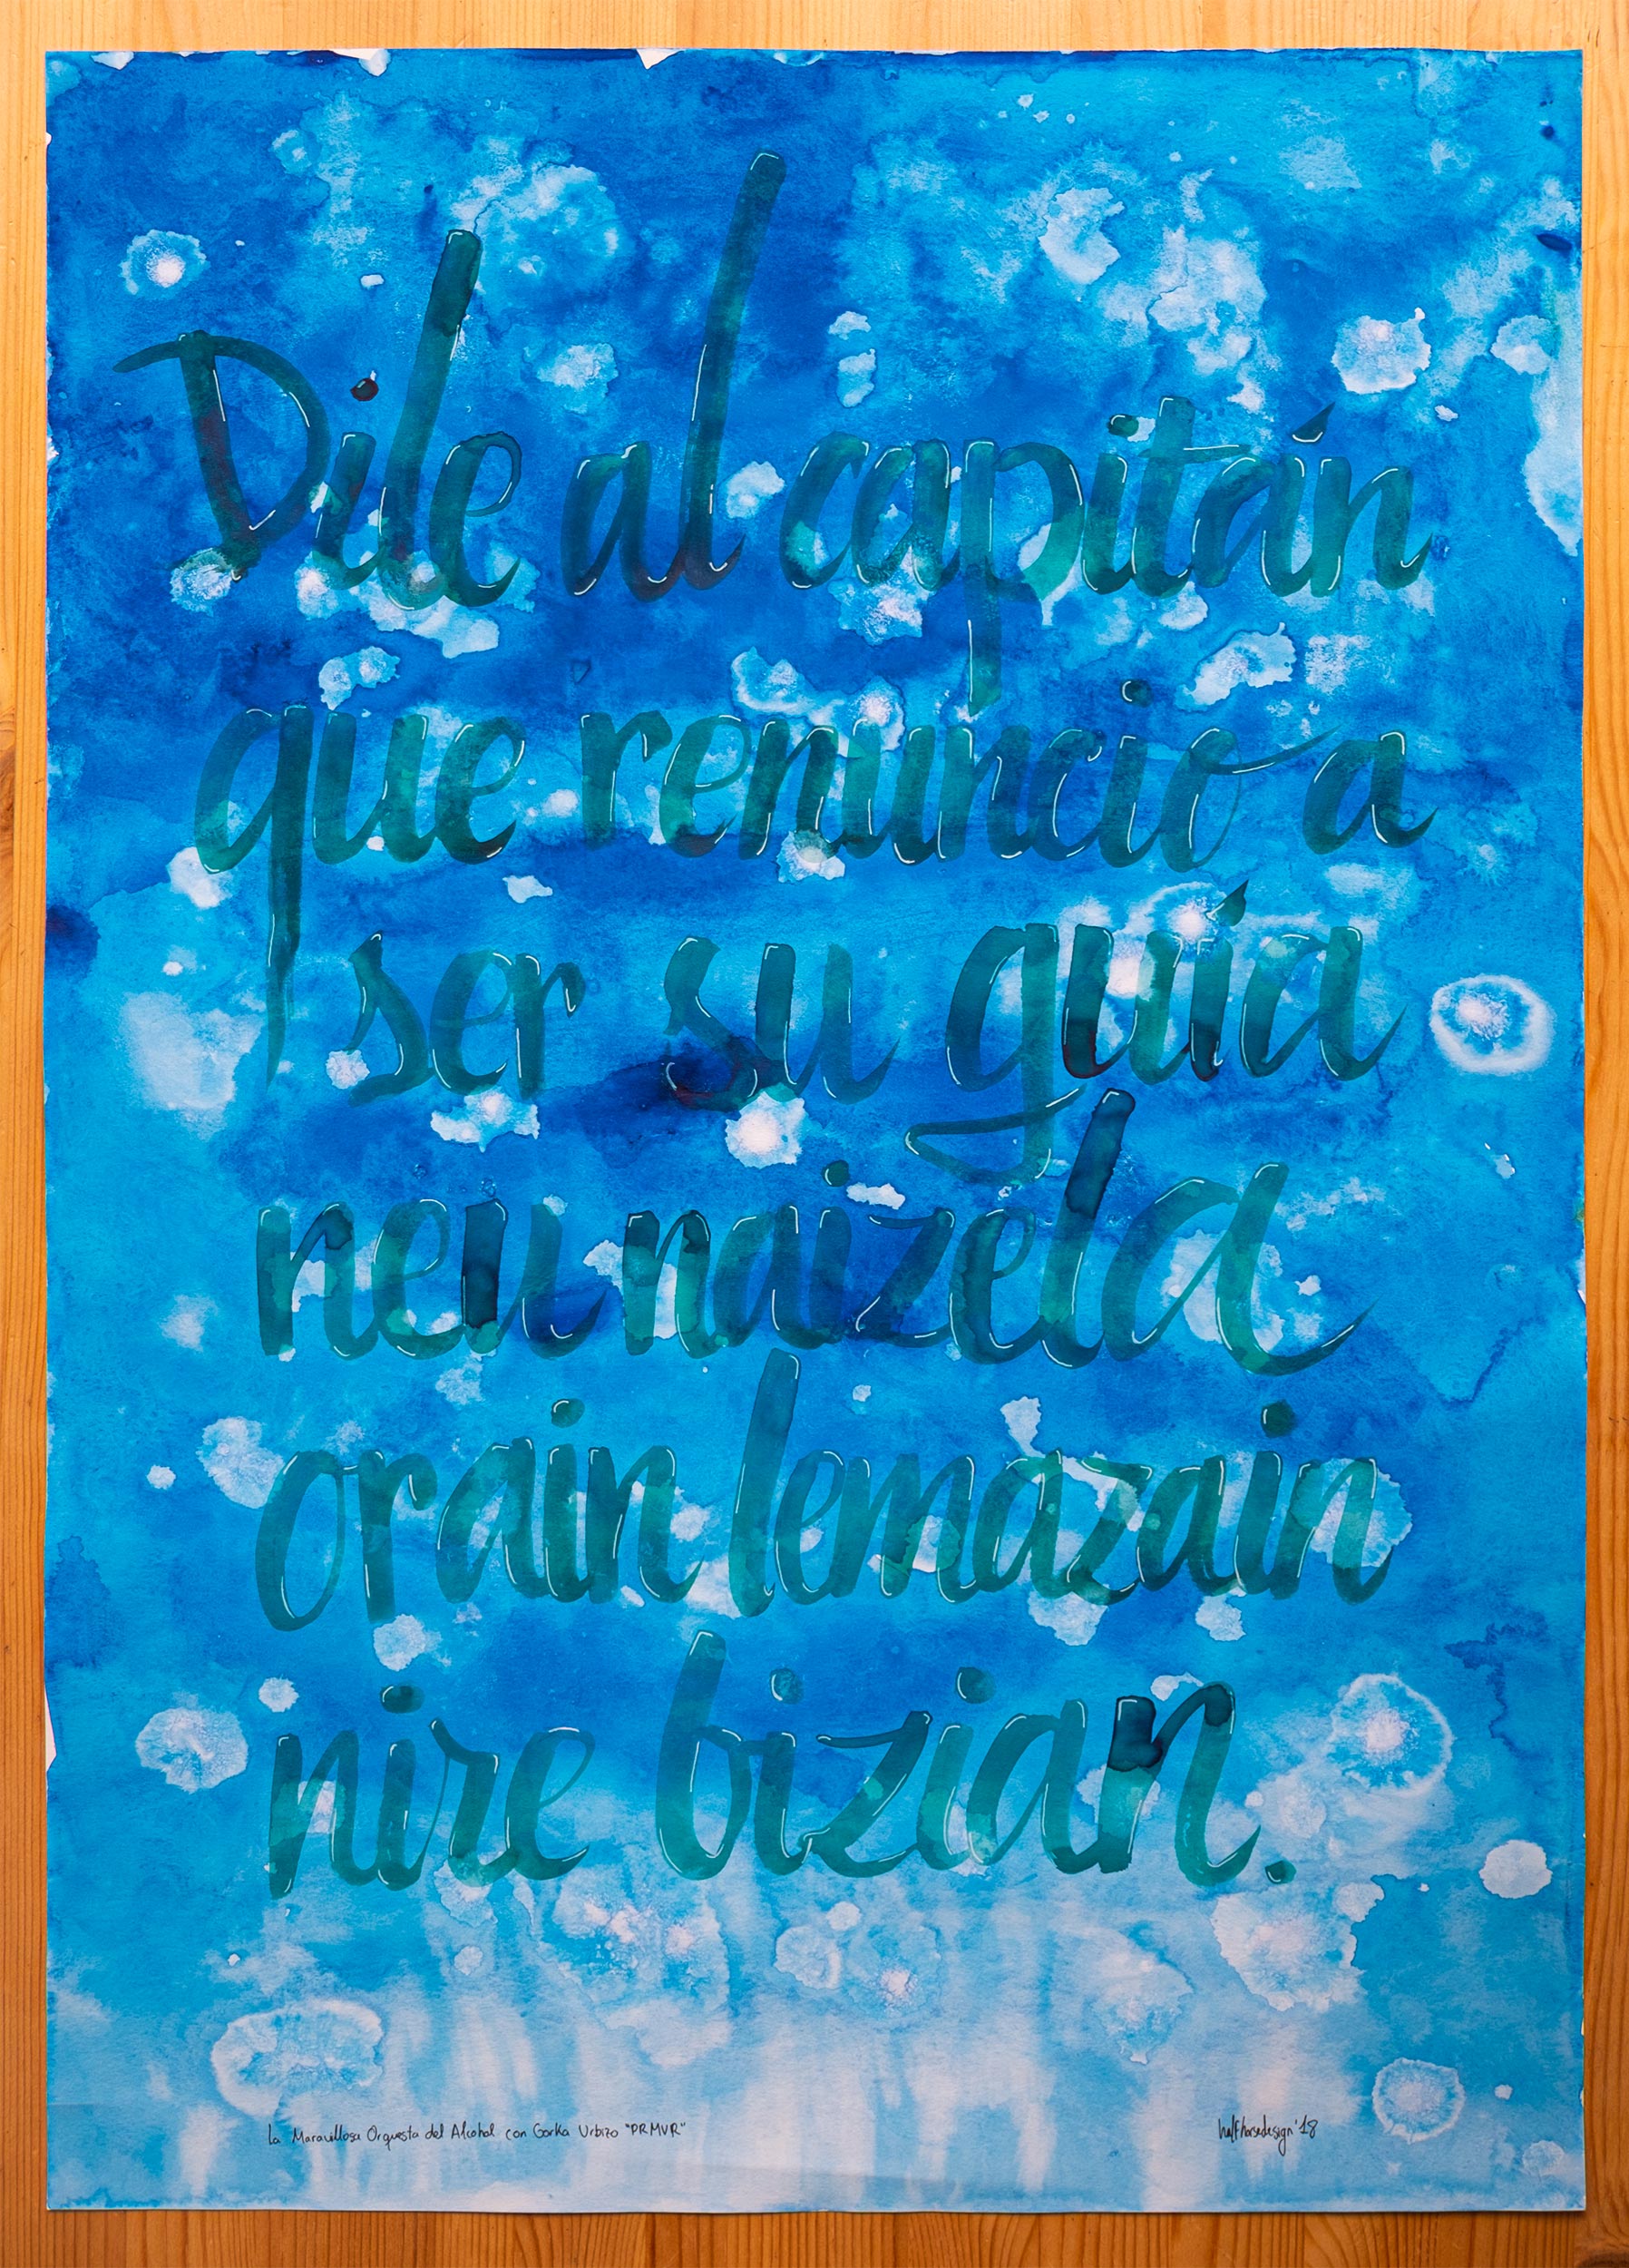 Dile al capitán
que renuncio a
ser su guía
neu naizela
orain lemazain
nire bizian.
La Maravillosa Orquesta del Alcohol con Gorka Urbizo "PRMVR"
halfhorsedesign '18